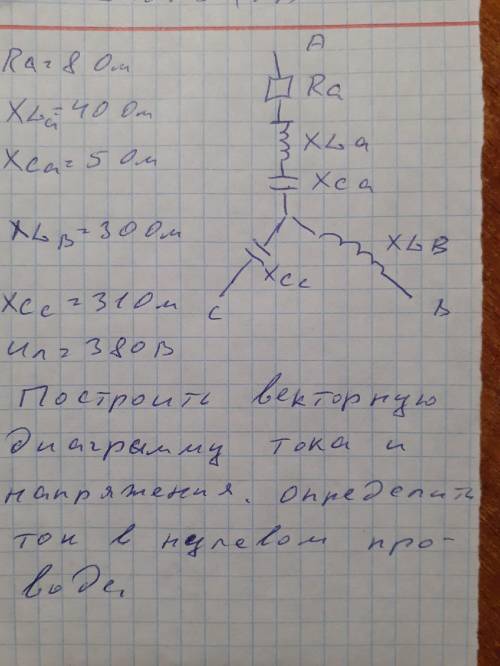 Ra=8 Ом
A
Ra
XLa=40 Ом
XLa
Xca=5 Ом
Xca
XLB=30 Ом
XLB
Xcc
Xcc=31 Ом
C
B
Uл=380В
Построить векторную
диаграмму тока и
напряжения. определить
ток в нулевом про-
воде.